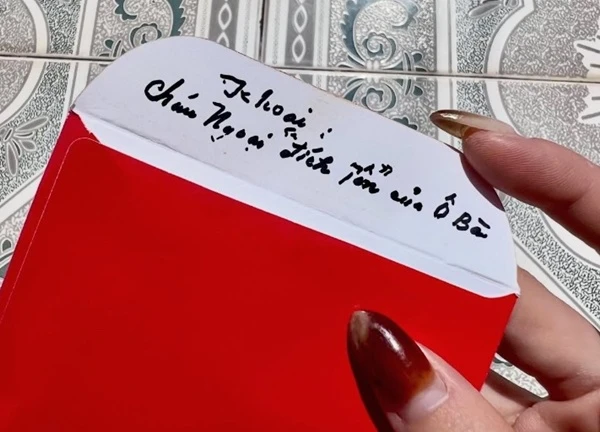 Khoai :
cháu Ngoại "đích tôn" của Ô Bà